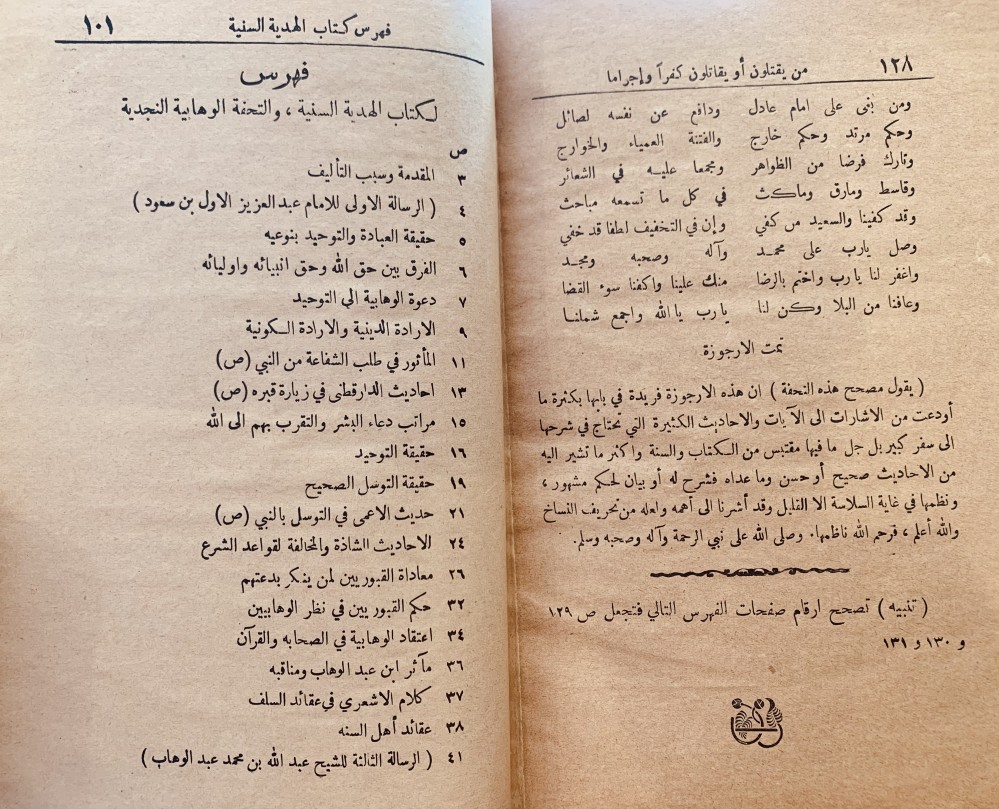 ١٢٨ من يقتلون أو يقاتلون كفراً وإجراما
ومن بغى على امام عادل ودافع عن نفسه لصائل
وحكم مرتد وحكم خارج والفتنة العمياء والخوارج
وتارك فرضا من الظواهر ومجمعا عليه في الشعائر
وقاسط ومارق وماكث في كل ما تسمعه مباحث
وقد كفينا والسعيد من كفي وإن في التخفيف لطفا قد خفي
وصل يارب على محمد وآله وصحبه ومجد
واغفر لنا يارب واختم بالرضا منك علينا واكفنا سوء القضا
وعافنا من البلا وكن لنا يارب يا الله واجمع شملنا
تمت الارجوزة
( يقول مصحح هذه التحفة ) ان هذه الارجوزة فريدة في بابها بكثرة ما
أودعت من الاشارات الى الآيات والاحاديث الكثيرة التي تحتاج في شرحها
الى سفر كبير بل جل ما فيها مقتبس من الكتاب والسنة واكثر ما تشير اليه
من الاحاديث صحيح أو حسن وما عداه فشرح له أو بيان لحكم مشهور ،
ونظمها في غاية السلاسة الا القليل وقد أشرنا الى أهمه ولعله من تحريف النساخ
والله أعلم ، فرحم الله ناظمها. وصلى الله على نبي الرحمة وآله وصحبه وسلم.
( تنبيه ) تصحح ارقام صفحات الفهرس التالي فتجعل ص ١٢٩
و ١٣٠ و ١٣١
فهرس كتاب الهدية السنية ١٠١
فهرس
لكتاب الهدية السنية ، والتحفة الوهابية النجدية
ص
٣ المقدمة وسبب التأليف
٤ ( الرسالة الاولى للامام عبد العزيز الاول بن سعود )
٥ حقيقة العبادة والتوحيد بنوعيه
٦ الفرق بين حق الله وحق انبيائه واوليائه
٧ دعوة الوهابية الى التوحيد
٩ الارادة الدينية والارادة الكونية
١١ المأثور في طلب الشفاعة من النبي (ص)
١٣ احاديث الدارقطنى في زيارة قبره (ص)
١٥ مراتب دعاء البشر والتقرب بهم الى الله
١٦ حقيقة التوحيد
١٩ حقيقة التوسل الصحيح
٢١ حديث الاعمى في التوسل بالنبي (ص)
٢٤ الاحاديث الشاذة والمخالفة لقواعد الشرع
٢٦ معاداة القبوريين لمن ينكر بدعتهم
٣٢ حكم القبوريين في نظر الوهابيين
٣٤ اعتقاد الوهابية في الصحابه والقرآن
٣٦ مآثر ابن عبد الوهاب ومناقبه
٣٧ كلام الاشعري في عقائد السلف
٣٨ عقائد أهل السنه
٤١ ( الرسالة الثالثة للشيح عبد الله بن محمد عبد الوهاب )